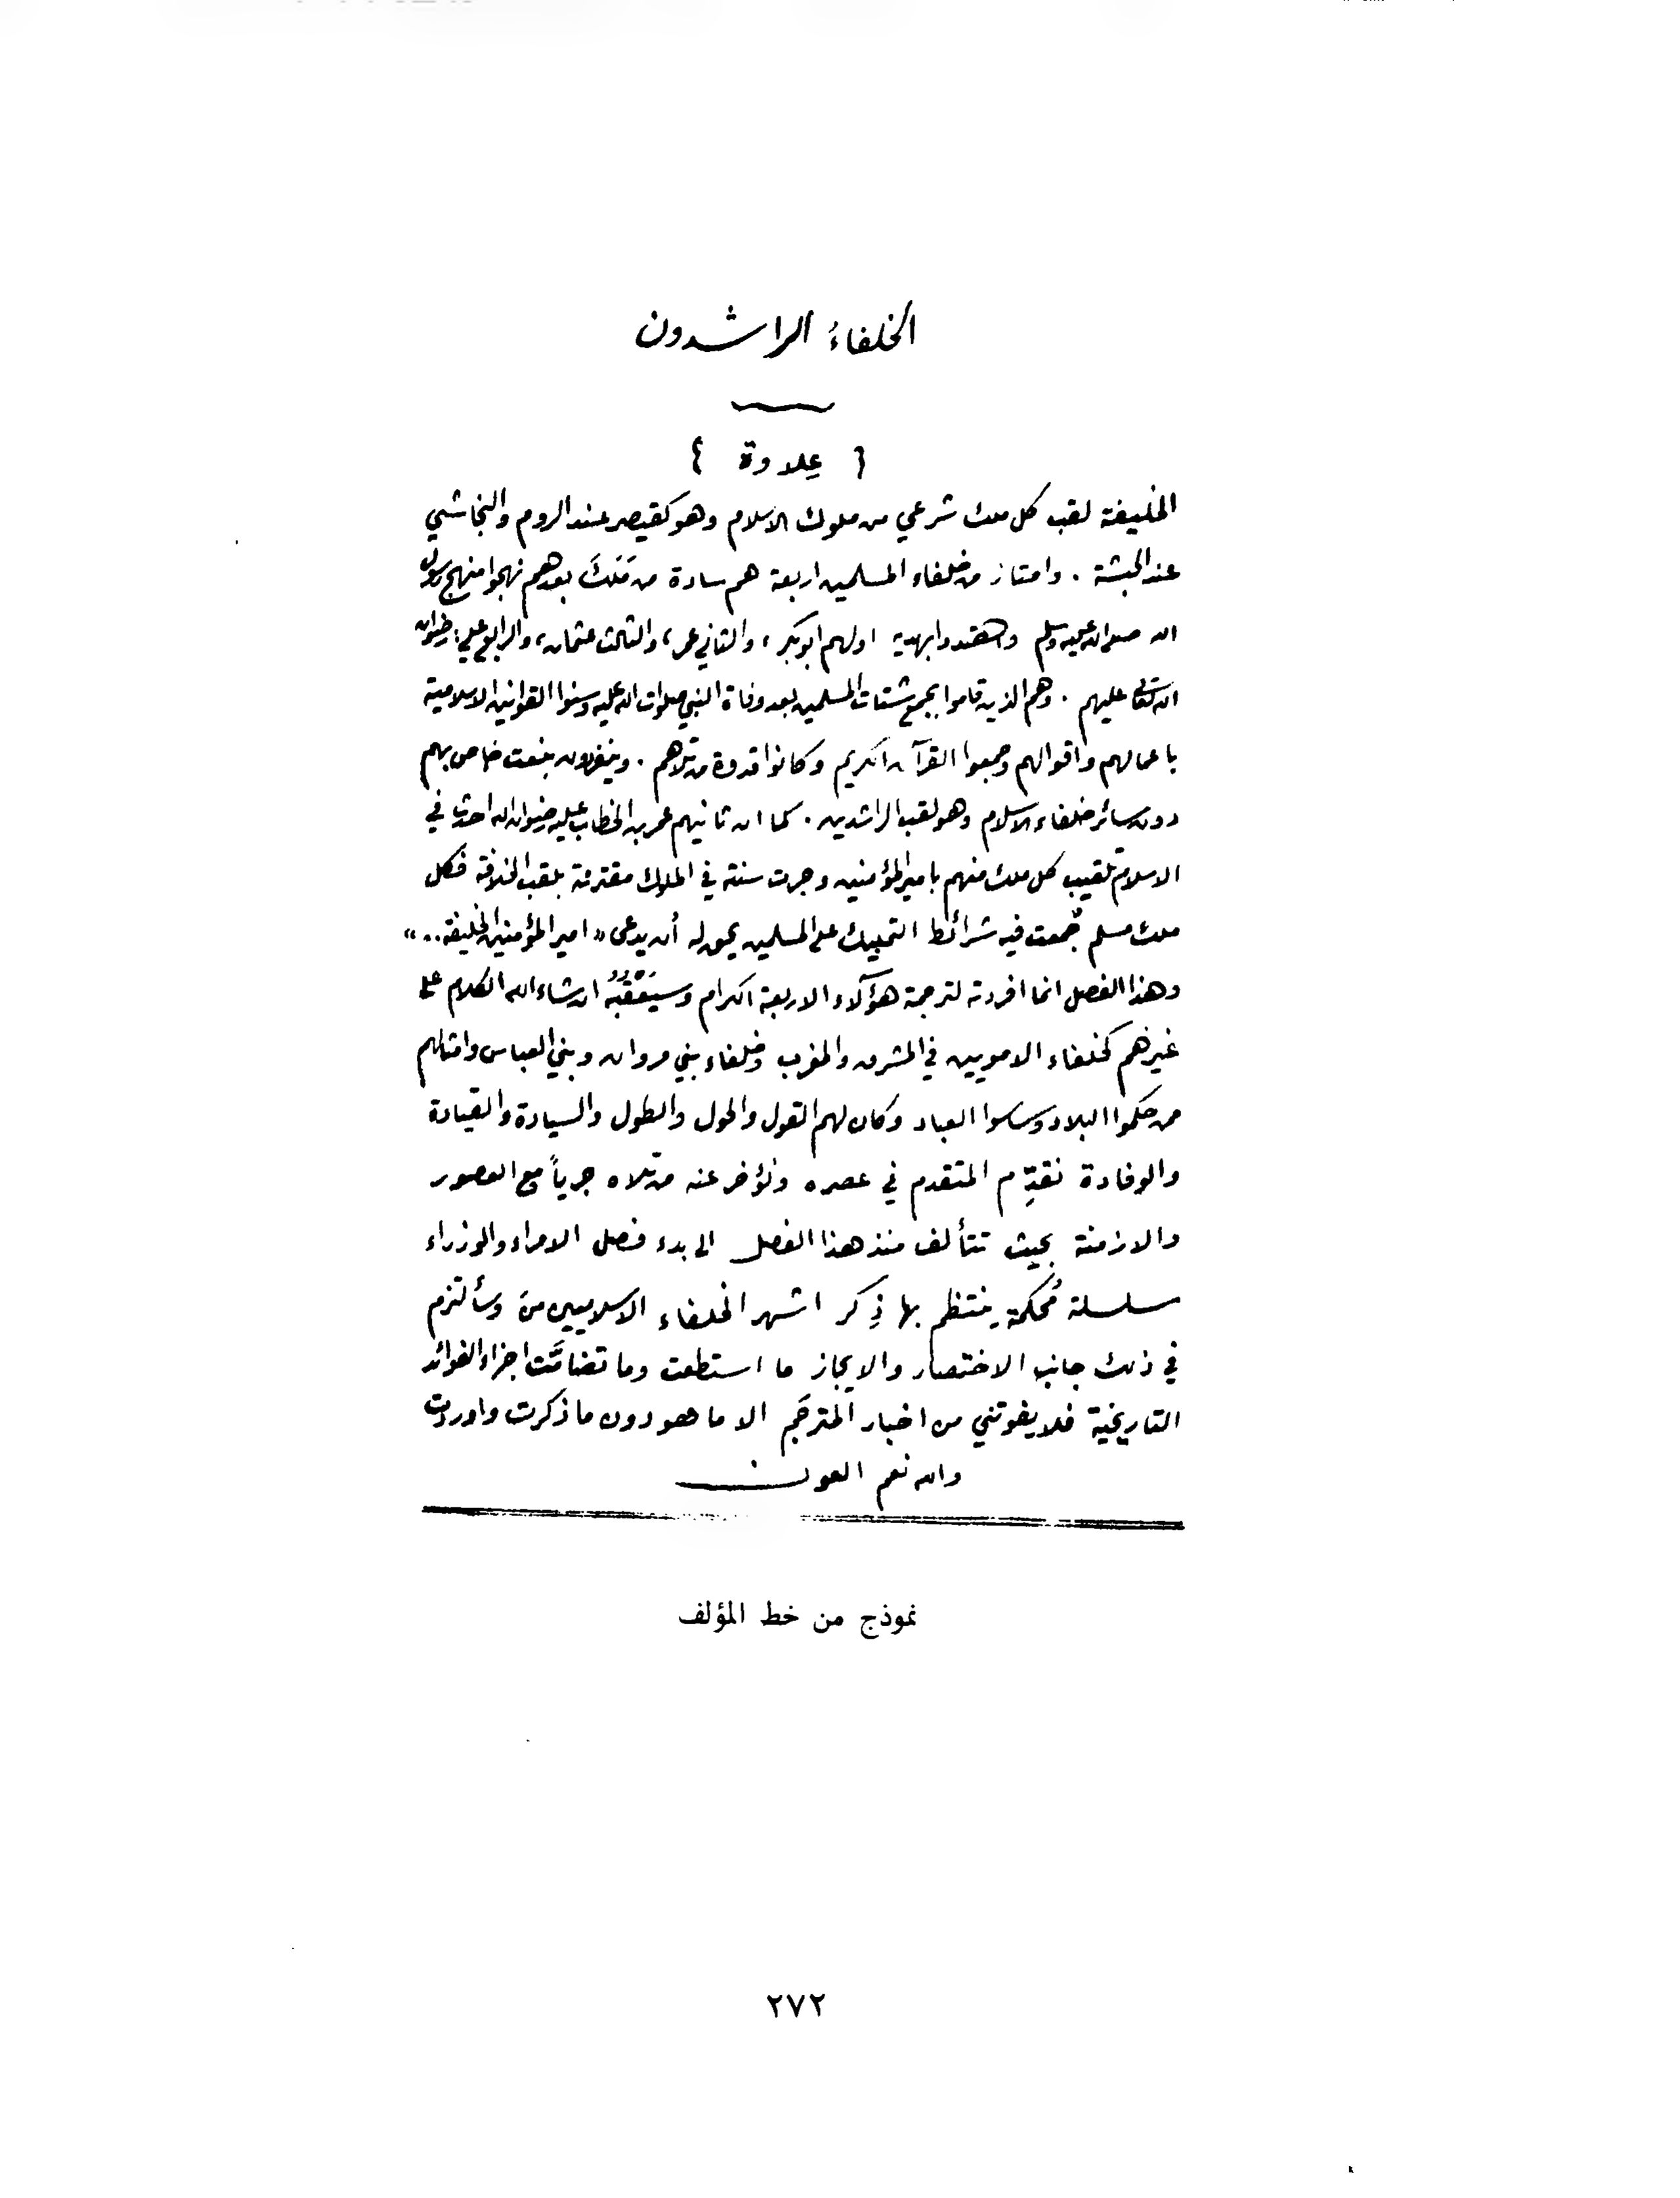 الخلفاءُ الراشدون
{ عِلاوة }
الخليفة لقب كل ملك شرعي من ملوك الاسلام وهو كقيصر عند الروم والنجاشي
عند الحبشة . وامتاز من خلفاء المسلمين اربعة هم سادة من مَلَكَ بعدهم نهجوا منهج رسول
الله صلى الله عليه وسلم واهتدوا بهديه اولهم ابو بكر ، والثاني عمر ، والثالث عثمان ، والرابع علي : رضوان
الله تعالى عليهم . وهم الذين قاموا بجمع شتات المسلمين بعد وفاة النبي صلوات الله عليه وسنوا القوانين الاسلامية
باعمالهم واقوالهم وجمعوا القرآن الكريم وكانوا قدوة من تلاهم . وينفردون بنعت خاص بهم
دون سائر خلفاء الاسلام وهو لقب الراشدين . كما ان ثانيهم عمر بن الخطاب عليه رضوان الله احدث في
الاسلام تلقيب كل ملك منهم بامير المؤمنين وجرت سنة في الملوك مقترنة بلقب الخلافة فكل
ملك مسلم جُمعت فيه شرائط التمليك على المسلمين يحق له أن يدعى « امير المؤمنين الخليفة .. »
وهذا الفصل انما افردته لترجمة هؤلآء الاربعة الكرام وسيَعْقُبُه ان شاء الله الكلام على
غيرهم كخلفاء الامويين في المشرق والمغرب وخلفاء بني مروان وبني العباس وامثالهم
من حكموا البلاد وساسوا العباد وكان لهم القول والحول والطول والسيادة والقيادة
والوفادة نقدِّم المتقدم في عصره ونؤخر عنه من تلاه جرياً مع العصور
والازمنة بحيث تتألف منذ هذا الفصل الى بدء فصل الامراء والوزراء
سلسلة مُحكمة ينتظم بها ذِكر اشهر الخلفاء الاسلاميين وسألتزم
في ذلك جانب الاختصار والايجاز ما استطعت وما تضامَّت اجزاء الفوائد
التاريخية فلا يفوتني من اخبار المترجَم الا ما هو دون ما ذكرت واوردت
والله نعم العون
نموذج من خط المؤلف
٢٧٢